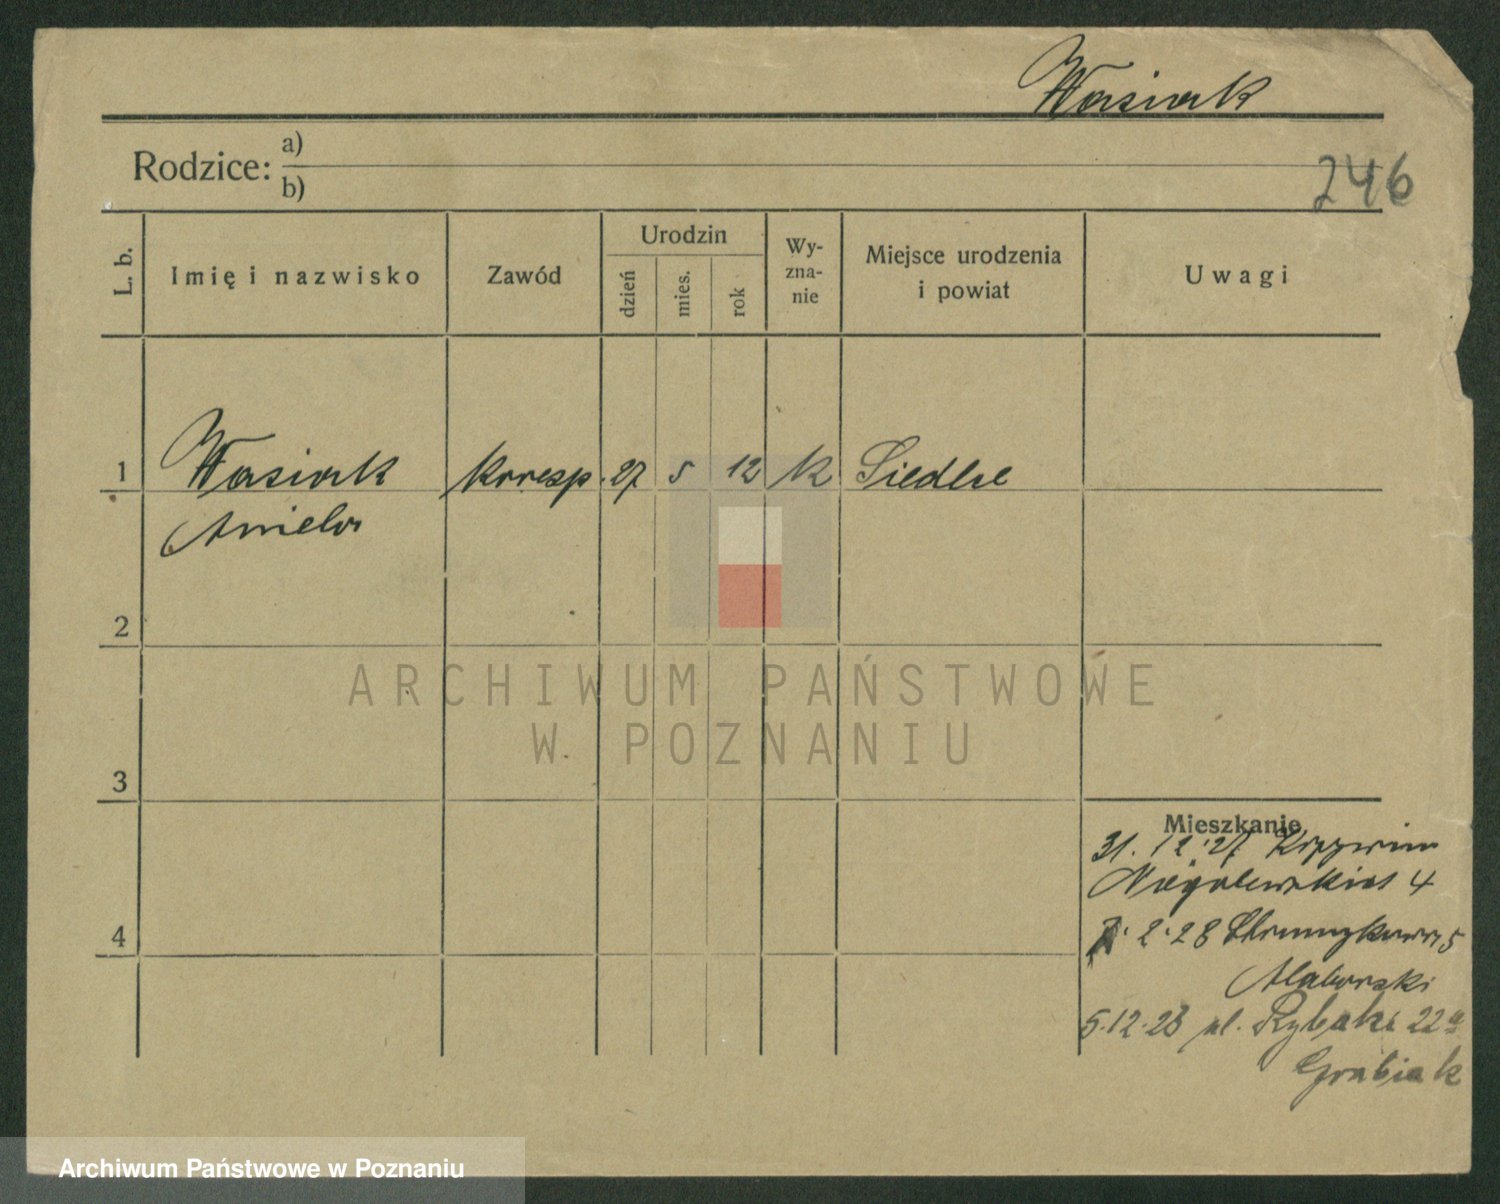 Wasiak
Rodzice: a)
b)
246
L. b. Imię i nazwisko Zawód Urodzin dzień mies. rok Wy-zna-nie Miejsce urodzenia i powiat Uwagi
1 Wasiak korresp. 27 5 12 k Siedlce
Aniela
2
3
4
Mieszkanie
31. 12. 27
4
2. 28 5
5.12.28 ul. Rybaki 22a
Grabiak
ARCHIWUM PAŃSTWOWE
W POZNANIU
Archiwum Państwowe w Poznaniu